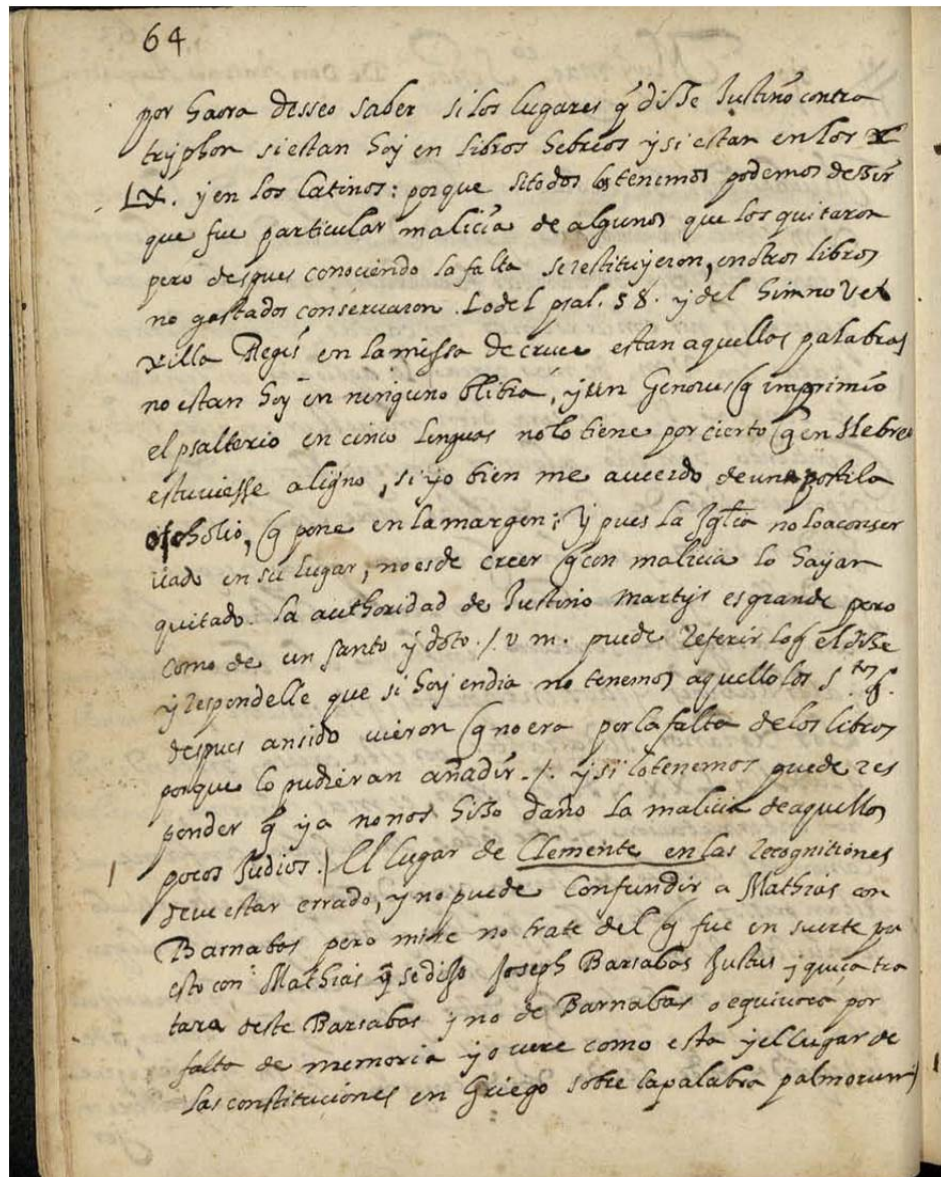 64
por haora desseo saber si los lugares q̃ dise Justino contra
tryphon si estan hoy en libros hebreos y si estan en los
LX. y en los latinos: porque si todos los tenemos podemos dessir
que fue particular malicia de algunos que los quitaron
pero despues conociendo la falta se restituyeron, en otros libros
no gastados conservaron. Lo del psal. 58. y del himno Ve
xilla Regis en la missa de cruce estan aquellas palabras
no estan hoy en ninguno blibia, y un Genoves q̃ imprimio
el psalterio en cinco lenguas no lo tiene por cierto q̃ en Hebreo
estuviesse aligno, si yo bien me acuerdo de una postila
o scholio, q̃ pone en la margen; y pues la Iglia no lo a conser
uado en su lugar, no es de creer q̃ con malicia lo hayan
quitado. la authoridad de Justino martyr es grande pero
como de un santo y doto./. v m. puede referir lo q̃ el dise
y respondelle que si hoy en dia no tenemos aquello los s.tos
despues an sido vieron q̃ no era por la falta de los libros
porque lo pudieran añadir./. y si lo tenemos puede res
ponder q̃ ya no nos hiso daño la malicia de aquellos
pocos Judios. El lugar de Clemente en las recognitiones
deve estar errado, y no puede confundir a Mathias con
Barnabas pero mire no trate del q̃ fue en suerte pu
esto con Mathias q̃ se dijo Joseph Barsabas Justus y quiça tra
tara deste Barsabas y no de Barnabas o equivoca por
falta de memoria yo vere como esta y el lugar de
las constituciones en Griego sobre la palabra palmorum